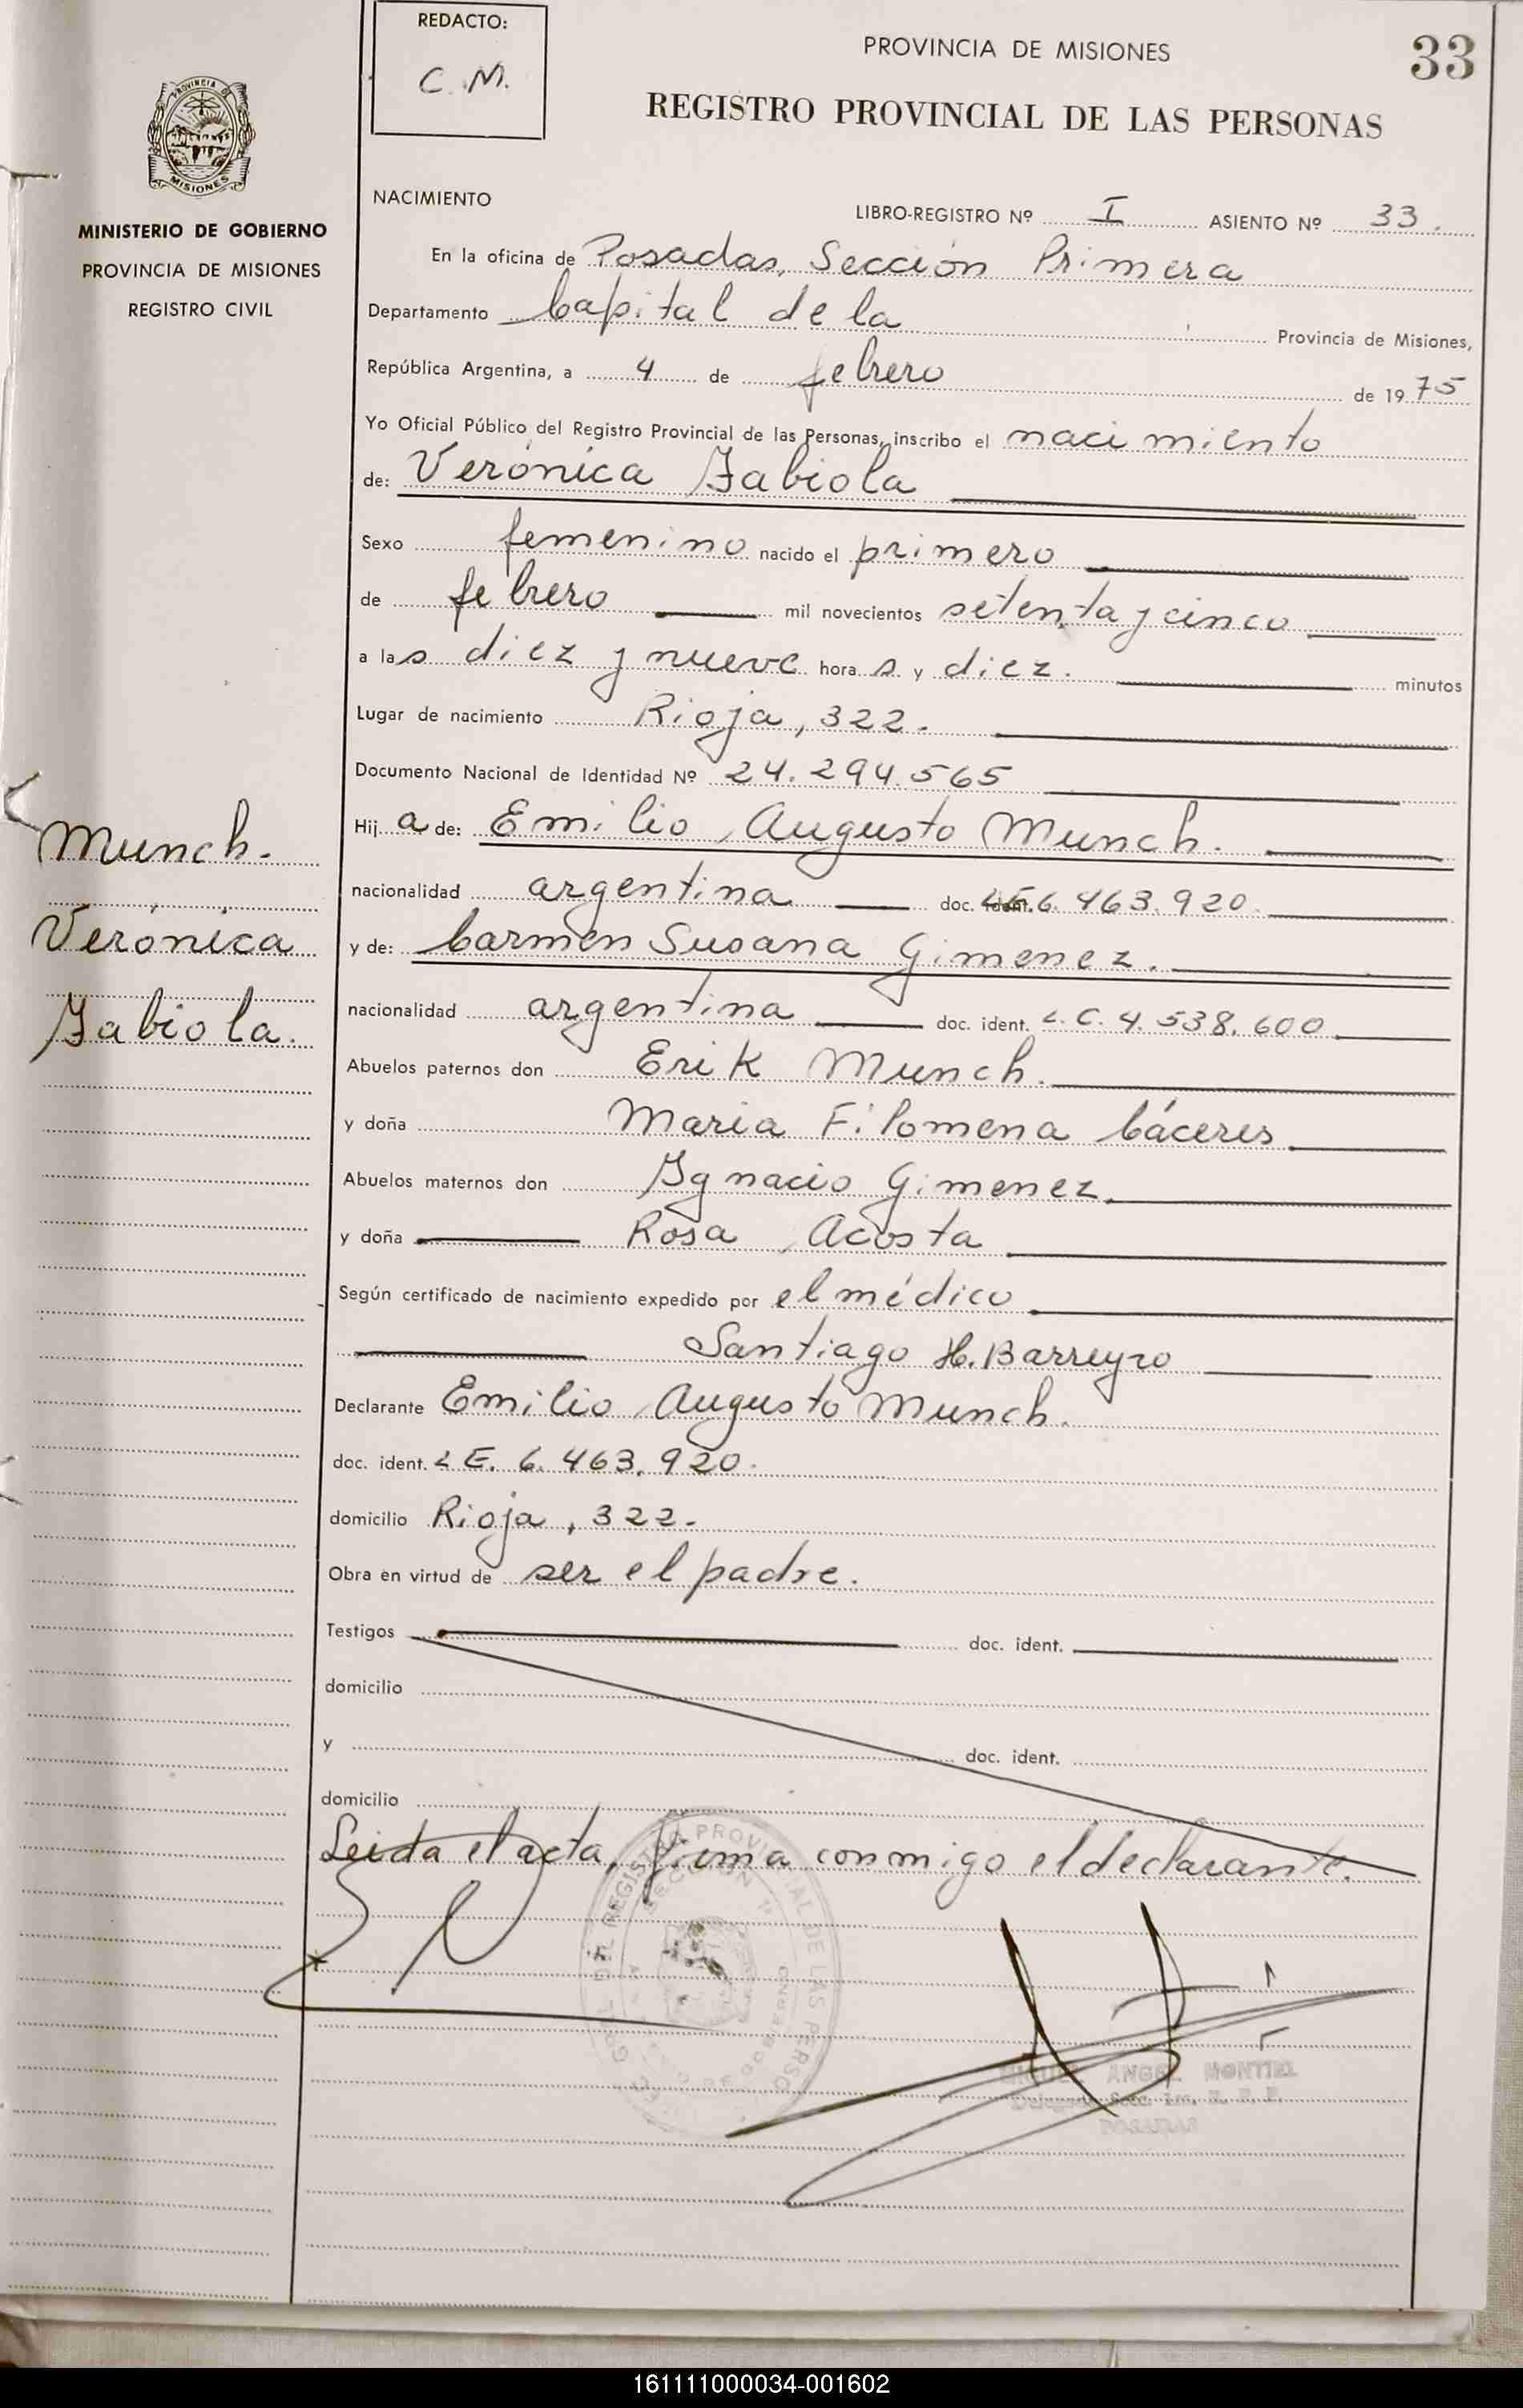 REDACTO:
C.M.
PROVINCIA DE MISIONES
33
REGISTRO PROVINCIAL DE LAS PERSONAS
PROVINCIA DE
MISIONES
MINISTERIO DE GOBIERNO
PROVINCIA DE MISIONES
REGISTRO CIVIL
NACIMIENTO
LIBRO-REGISTRO Nº I ASIENTO Nº 33.
En la oficina de Posadas, Sección Primera
Departamento Capital de la Provincia de Misiones,
República Argentina, a 4 de febrero de 1975
Yo Oficial Público del Registro Provincial de las Personas, inscribo el nacimiento
de: Verónica Fabiola
Sexo femenino nacido el primero
de febrero mil novecientos setenta y cinco
a las diez y nueve horas y diez. minutos
Lugar de nacimiento Rioja, 322.
Documento Nacional de Identidad Nº 24.294.565
Hija de: Emilio Augusto Munch.
nacionalidad argentina doc. ident. LE 6.463.920.
y de: Carmen Susana Gimenez.
nacionalidad argentina doc. ident. L.C. 4.538.600
Abuelos paternos don Erik Munch.
y doña Maria Filomena Cáceres
Abuelos maternos don Ignacio Gimenez
y doña Rosa Acosta
Según certificado de nacimiento expedido por el médico
Santiago H. Barreyro
Declarante Emilio Augusto Munch.
doc. ident. LE. 6.463.920.
domicilio Rioja, 322.
Obra en virtud de ser el padre.
Testigos doc. ident.
domicilio
y doc. ident.
domicilio
Leida el acta, firma conmigo el declarante.
Munch.
Verónica
Fabiola.
REGISTRO PROVINCIAL DE LAS PERSO
SECCION 1ª
MIGUEL ANGEL MONTIEL
POSADAS
161111000034-001602